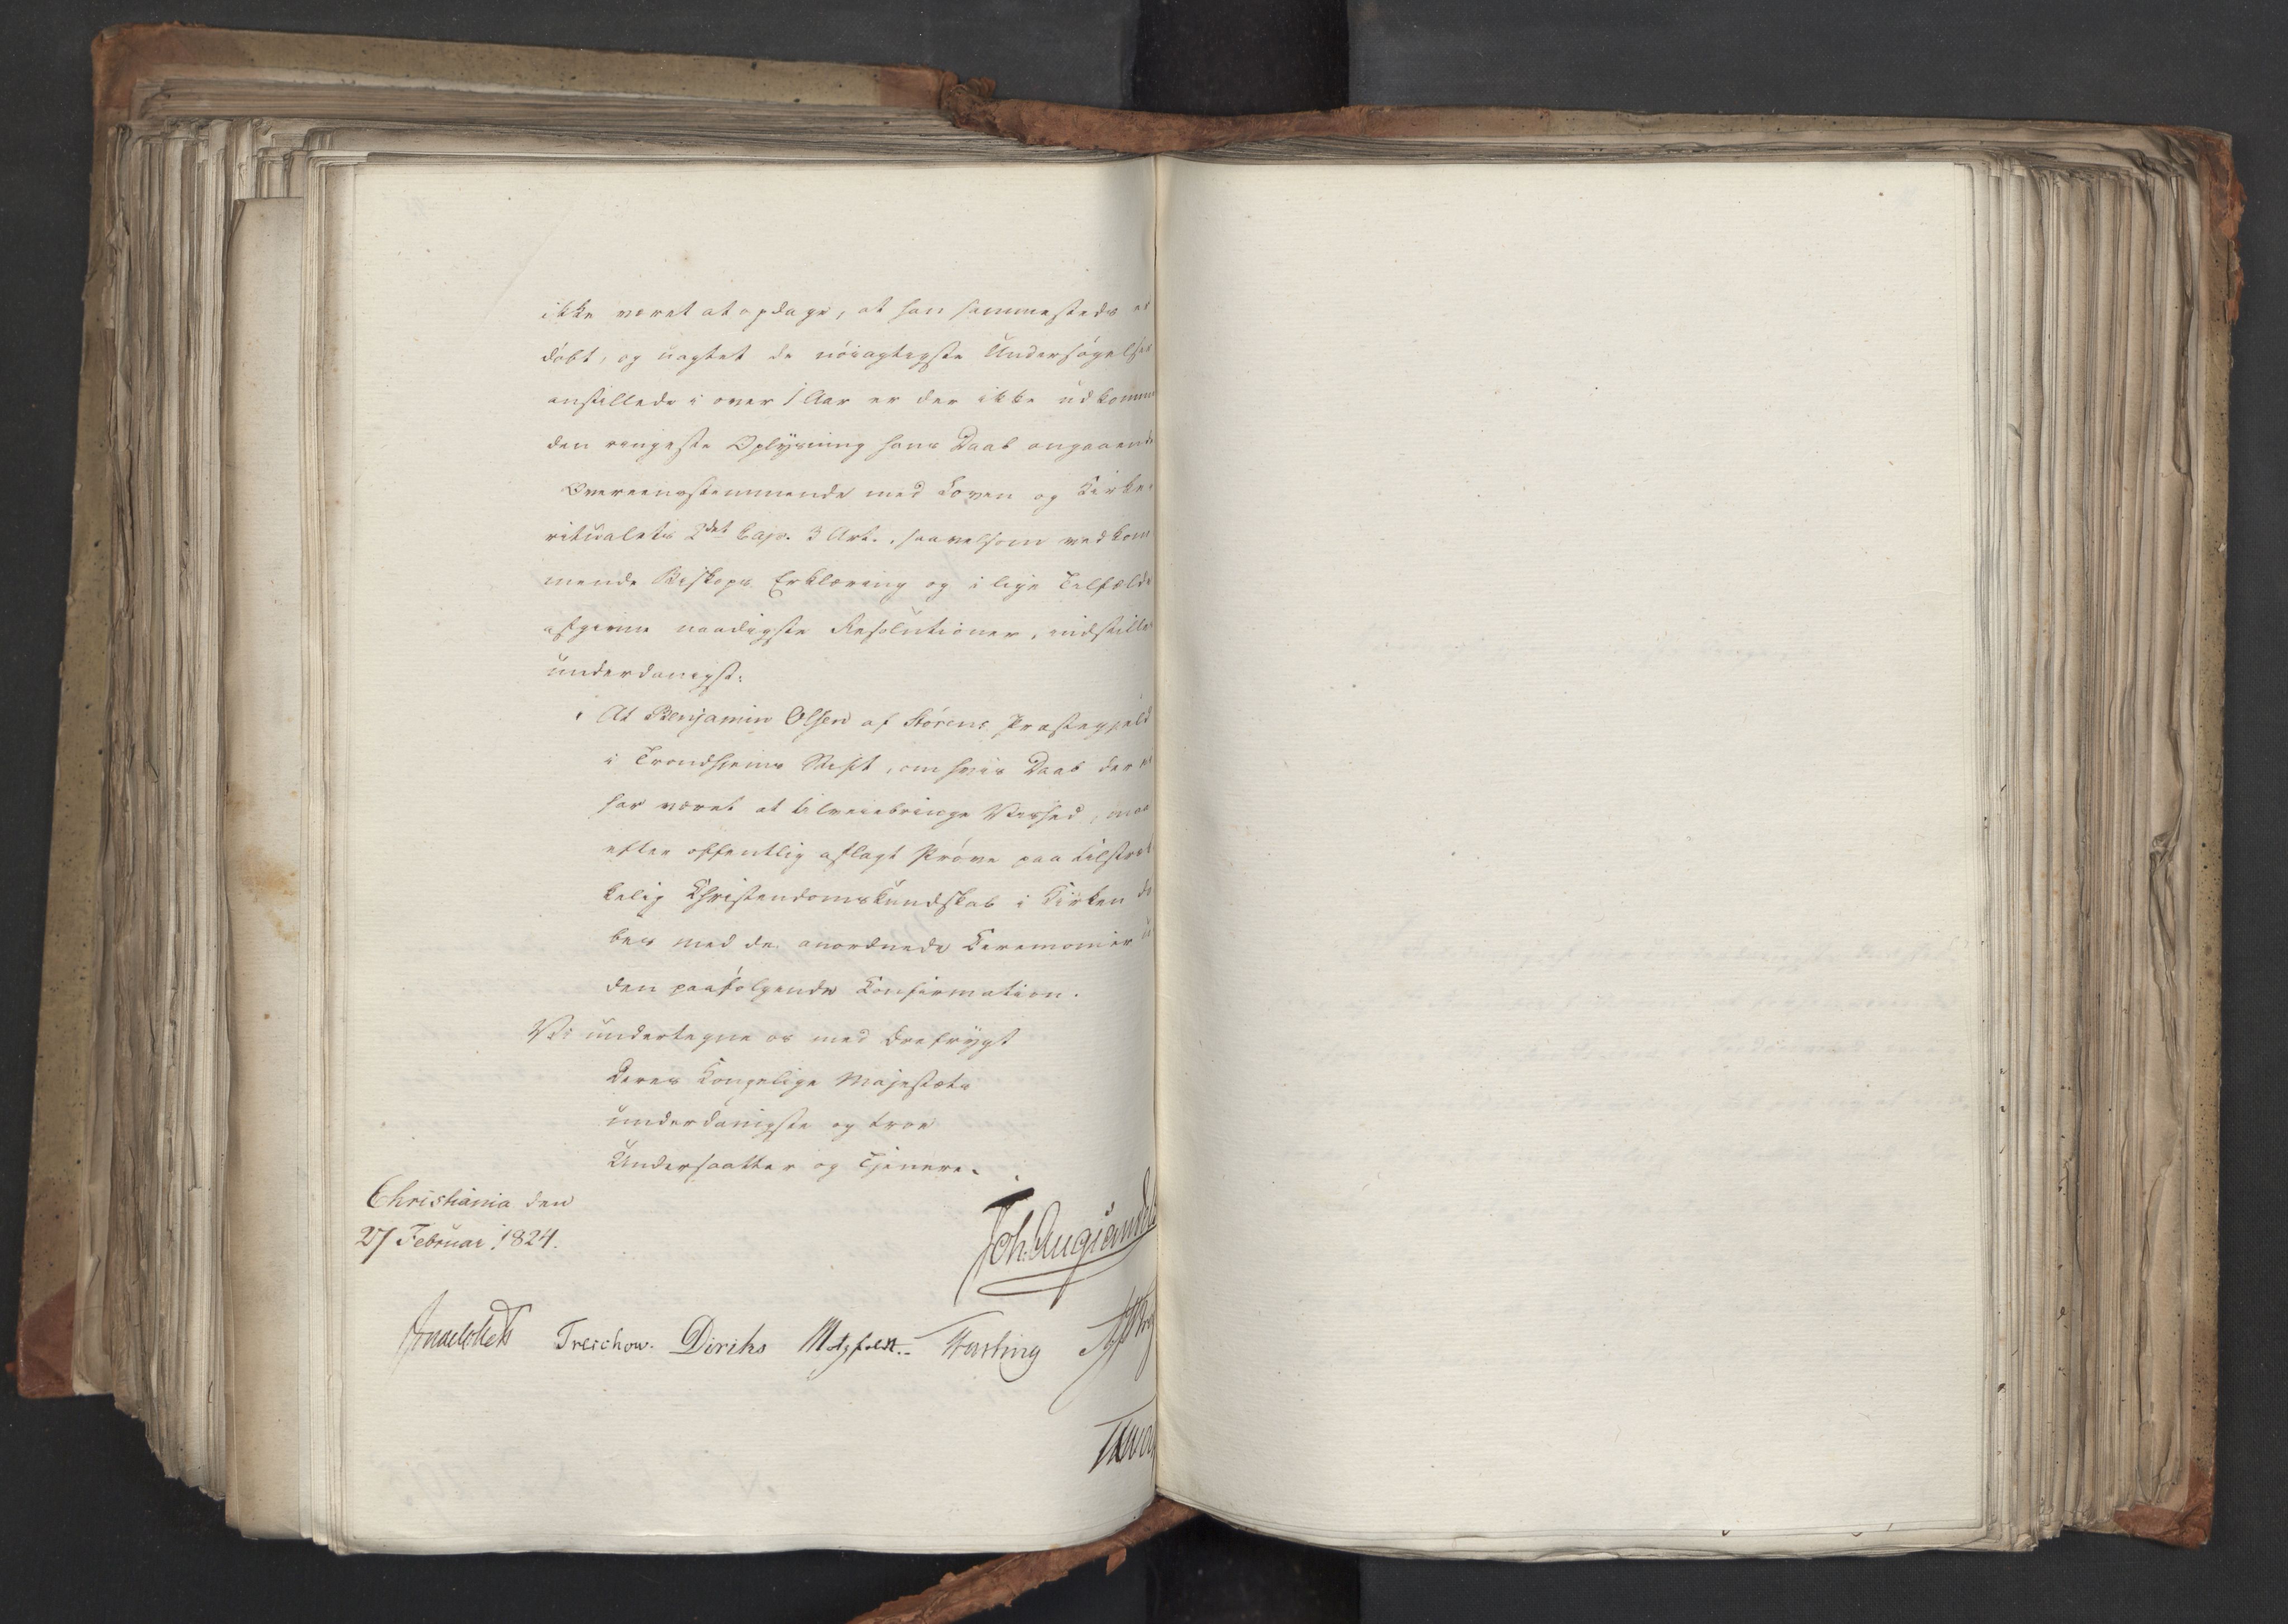 ikke været at opdage, at han sammesteds er
døbt, og uagtet de nöiagtigste Undersøgelser
anstillede i over 1 Aar er der ikke udkommet
den ringeste Oplysning hans Daab angaaende
Overeensstemmende med Loven og Kirke-
ritualets 2det Cap. 3 Art., saavelsom vedkom
mende Biskops Erklæring og i lige Tilfælde
afgivne naadigste Resolutioner, indstilles
underdanigst:
At Benjamin Olsen af Störens Præstegjeld
i Trondhjems Stift, om hvis Daab der ei
har været at tilveiebringe Vished, maa
efter offentlig aflagt Pröve paa tilstræk
kelig Christendomskundskab i Kirken dö
bes med de anordnede Ceremonier
den paafölgende Confirmation.
Vi undertegne os med Ærefrygt
Deres Kongelige Majestæts
underdanigste og troe
Undersaatter og Tjenere.
Christiania den
27 Februar 1824.
Joh. Aug. Sandels
Treschow. Diriks Motzfeldt. Fasting